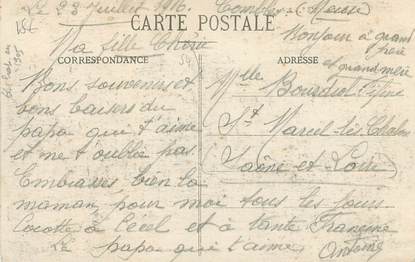 Le 23 Juillet 1916. Combles Meuse
CARTE POSTALE
Bonjour à grand
père
et grand mère
Ma fille Chérie
CORRESPONDANCE
ADRESSE
Bons souvenirs et
bons baisers du
papa qui t'aime
et ne t'oublie pas.
Embrasses bien la
maman, pour moi tous les jours
Cocotte à Cécel et à tante Francine
Le papa qui t'aime
Antoine
Mlle
Bourdiol
St Marcel lès Chalon
Saône et Loire